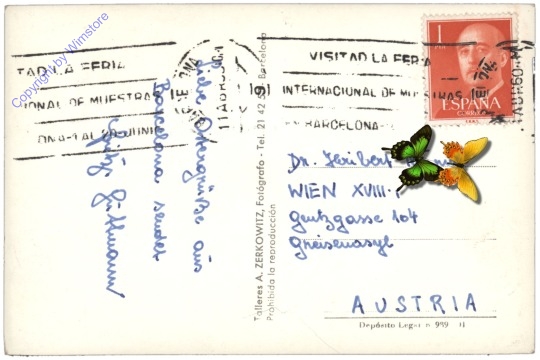 Copyright by Wimstore
VISITAD LA FERIA
INTERNACIONAL DE MUESTRAS
EN BARCELONA
TAD LA FERIA
IONAL DE MUESTRAS
ONA-1 AL 20 JUNIO
1
ESPAÑA
CORREOS
Liebe Ostergrüße aus
Barcelona sendet
Talleres A. ZERKOWITZ, Fotógrafo - Tel. 21 42 Barcelona
Prohibida la reproducción
Dr. Heribert
WIEN XVIII.
Gentzgasse 104
Greisenasyl
AUSTRIA
Depósito Legal